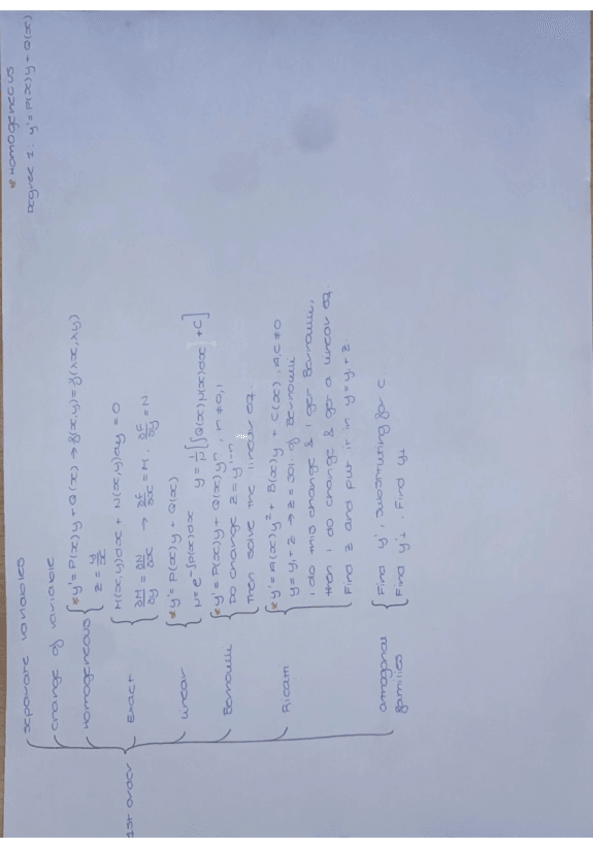 * Homogeneous
Degree 1: y' = P(x)y + Q(x)
1st order
separate variables
change of variable
Homogeneous
*y' = P(x)y + Q(x) → f(x,y) = f(λx, λy)
z = y/x
Exact
M(x,y)dx + N(x,y)dy = 0
∂M/∂y = ∂N/∂x → ∂F/∂x = M, ∂F/∂y = N
Linear
*y' = P(x)y + Q(x)
μ = e^-∫P(x)dx y = 1/μ [∫Q(x)μ(x)dx + C]
Bernoulli
*y' = P(x)y + Q(x)y^n, n ≠ 0,1
Do change z = y^1-n
Then solve the linear eq.
Ricatti
*y' = A(x)y² + B(x)y + C(x), A,C ≠ 0
y = y₁ + z → z = sol. of Bernoulli
I do this change & I get Bernoulli,
then I do change & get a linear eq.
Find z and put it in y = y₁ + z
orthogonal
families
Find y', substituting for c.
Find y'⊥. Find y⊥